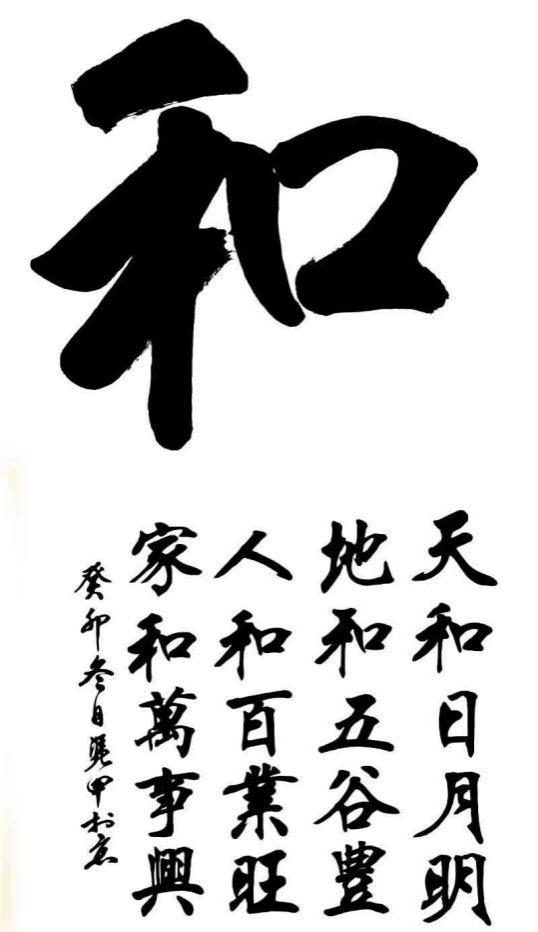 和
天和日月明
地和五谷豐
人和百業旺
家和萬事興
癸卯冬日